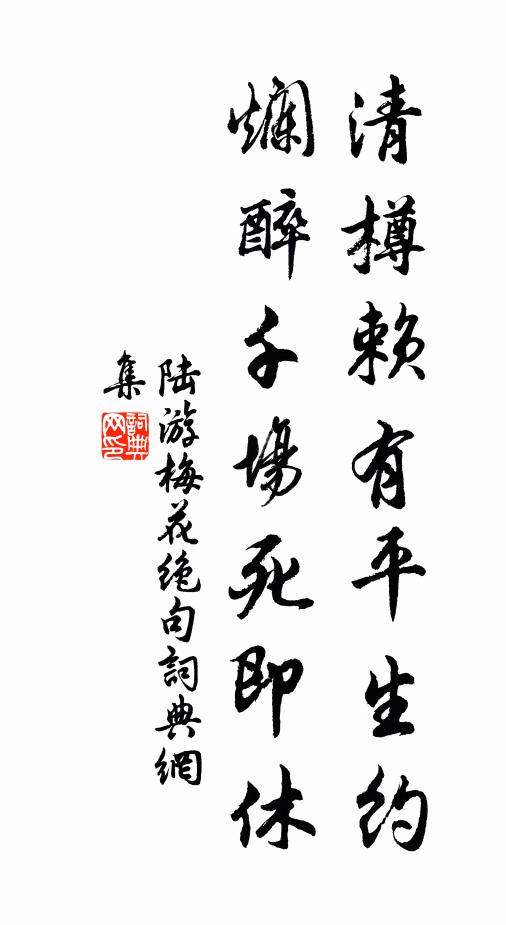 清樽赖有平生约
爛醉千場死即休
陆游梅花绝句詞典網
集
詞典网印